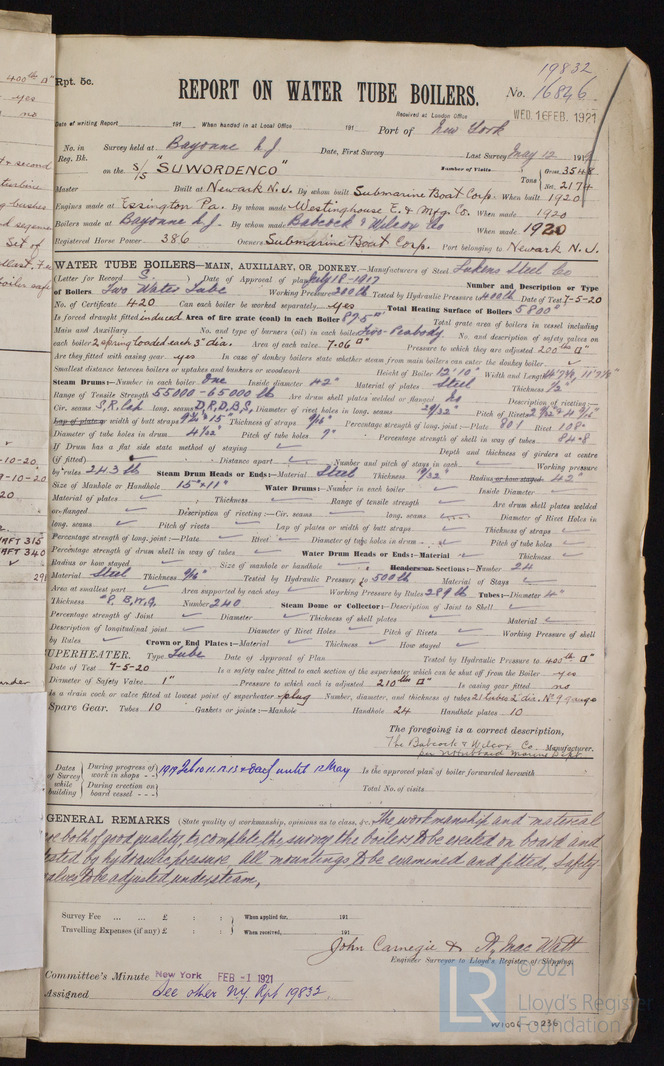 19832
Rpt. 5c.
REPORT ON WATER TUBE BOILERS.
No. 16846
Received at London Office WED. 16 FEB. 1921
Date of writing Report 191 When handed in at Local Office 191 Port of New York
No. in Reg. Bk. Survey held at Bayonne N J Date, First Survey Last Survey May 12 191
on the S/S "SUWORDENCO" Number of Visits Tons Gross 3548 Net 2174
Master Built at Newark N.J. By whom built Submarine Boat Corp. When built 1920
Engines made at Essington Pa. By whom made Westinghouse E. & Mfg. Co. When made 1920
Boilers made at Bayonne N.J. By whom made Babcock & Wilcox Co When made 1920
Registered Horse Power 386 Owners Submarine Boat Corp. Port belonging to Newark N.J.
WATER TUBE BOILERS—MAIN, AUXILIARY, OR DONKEY.—Manufacturers of Steel Lukens Steel Co
(Letter for Record S.) Date of Approval of plan July 18-1917 Number and Description or Type
of Boilers Two Water Tube Working Pressure 200 lb Tested by Hydraulic Pressure to 400 lb Date of Test 7-5-20
No. of Certificate 420 Can each boiler be worked separately yes Total Heating Surface of Boilers 5800
Is forced draught fitted induced Area of fire grate (coal) in each Boiler Total grate area of boilers in vessel including
Main and Auxiliary No. and type of burners (oil) in each boiler Five-Peabody No. and description of safety valves on
each boiler 2 spring loaded each 3" dia. Area of each valve 7.06 □" Pressure to which they are adjusted 200 lb □"
Are they fitted with easing gear yes In case of donkey boilers state whether steam from main boilers can enter the donkey boiler
Smallest distance between boilers or uptakes and bunkers or woodwork Height of Boiler 12'10" Width and Length
Steam Drums:—Number in each boiler One Inside diameter 42" Material of plates Steel Thickness ½"
Range of Tensile Strength 55000-65000 lb Are drum shell plates welded or flanged No Description of riveting:—
Cir. seams S.R.Lap long. seams D.R.D.B.S. Diameter of rivet holes in long. seams 29/32" Pitch of Rivets
Lap of plate or width of butt straps Thickness of straps Percentage strength of long. joint:—Plate 80.1 Rivet 108.
Diameter of tube holes in drum 4 1/32" Pitch of tube holes 7" Percentage strength of shell in way of tubes 84.8
If Drum has a flat side state method of staying Depth and thickness of girders at centre
(if fitted) Distance apart Number and pitch of stays in each Working pressure
by rules 243 lb Steam Drum Heads or Ends:—Material Steel Thickness 19/32" Radius or how stayed 42"
Size of Manhole or Handhole 15"x11" Water Drums:—Number in each boiler Inside Diameter
Material of plates Thickness Range of tensile strength Are drum shell plates welded
or flanged Description of riveting:—Cir. seams long. seams Diameter of Rivet Holes in
long. seams Pitch of rivets Lap of plates or width of butt straps Thickness of straps
Percentage strength of long. joint:—Plate Rivet Diameter of tube holes in drum Pitch of tube holes
Percentage strength of drum shell in way of tubes Water Drum Heads or Ends:—Material Thickness
Radius or how stayed Size of manhole or handhole Headers or Sections:—Number 24
Material Steel Thickness 9/16" Tested by Hydraulic Pressure to 500 lb Material of Stays
Area at smallest part Area supported by each stay Working Pressure by Rules 289 lb Tubes:—Diameter 4"
Thickness #8 B.W.G. Number 240 Steam Dome or Collector:—Description of Joint to Shell
Percentage strength of Joint Diameter Thickness of shell plates Material
Description of longitudinal joint Diameter of Rivet Holes Pitch of Rivets Working Pressure of shell
by Rules Crown or End Plates:—Material Thickness How stayed
UPERHEATER. Type Tube Date of Approval of Plan Tested by Hydraulic Pressure to 400 lb □"
Date of Test 7-5-20 Is a safety valve fitted to each section of the superheater which can be shut off from the Boiler yes
Diameter of Safety Valve 1" Pressure to which each is adjusted 210 lbs □" Is easing gear fitted no
Is a drain cock or valve fitted at lowest point of superheater plug Number, diameter, and thickness of tubes 21 tubes 2" dia. No 9 gauge
Spare Gear. Tubes 10 Gaskets or joints:—Manhole Handhole 24 Handhole plates 10
The foregoing is a correct description,
The Babcock & Wilcox Co. Manufacturer.
Dates of Survey while building During progress of work in shops - - 1919 Feb 10.11.12.13 & Daily until 12 May Is the approved plan of boiler forwarded herewith
During erection on board vessel - - - Total No. of visits
GENERAL REMARKS (State quality of workmanship, opinions as to class, &c. The workmanship and material
are both of good quality, to complete the survey the boilers to be erected on board and
tested by hydraulic pressure. All mountings to be examined and fitted, Safety
valves to be adjusted under steam,
Survey Fee ... ... £ : : When applied for, 191
Travelling Expenses (if any) £ : : When received, 191
John Carnegie & A. Mac Watt
Engineer Surveyor to Lloyd's Register of Shipping.
Committee's Minute New York FEB -1 1921
Assigned See other N.Y. Rpt 19832.
© 2021
LR
Lloyd's Register
Foundation
W1006-0236